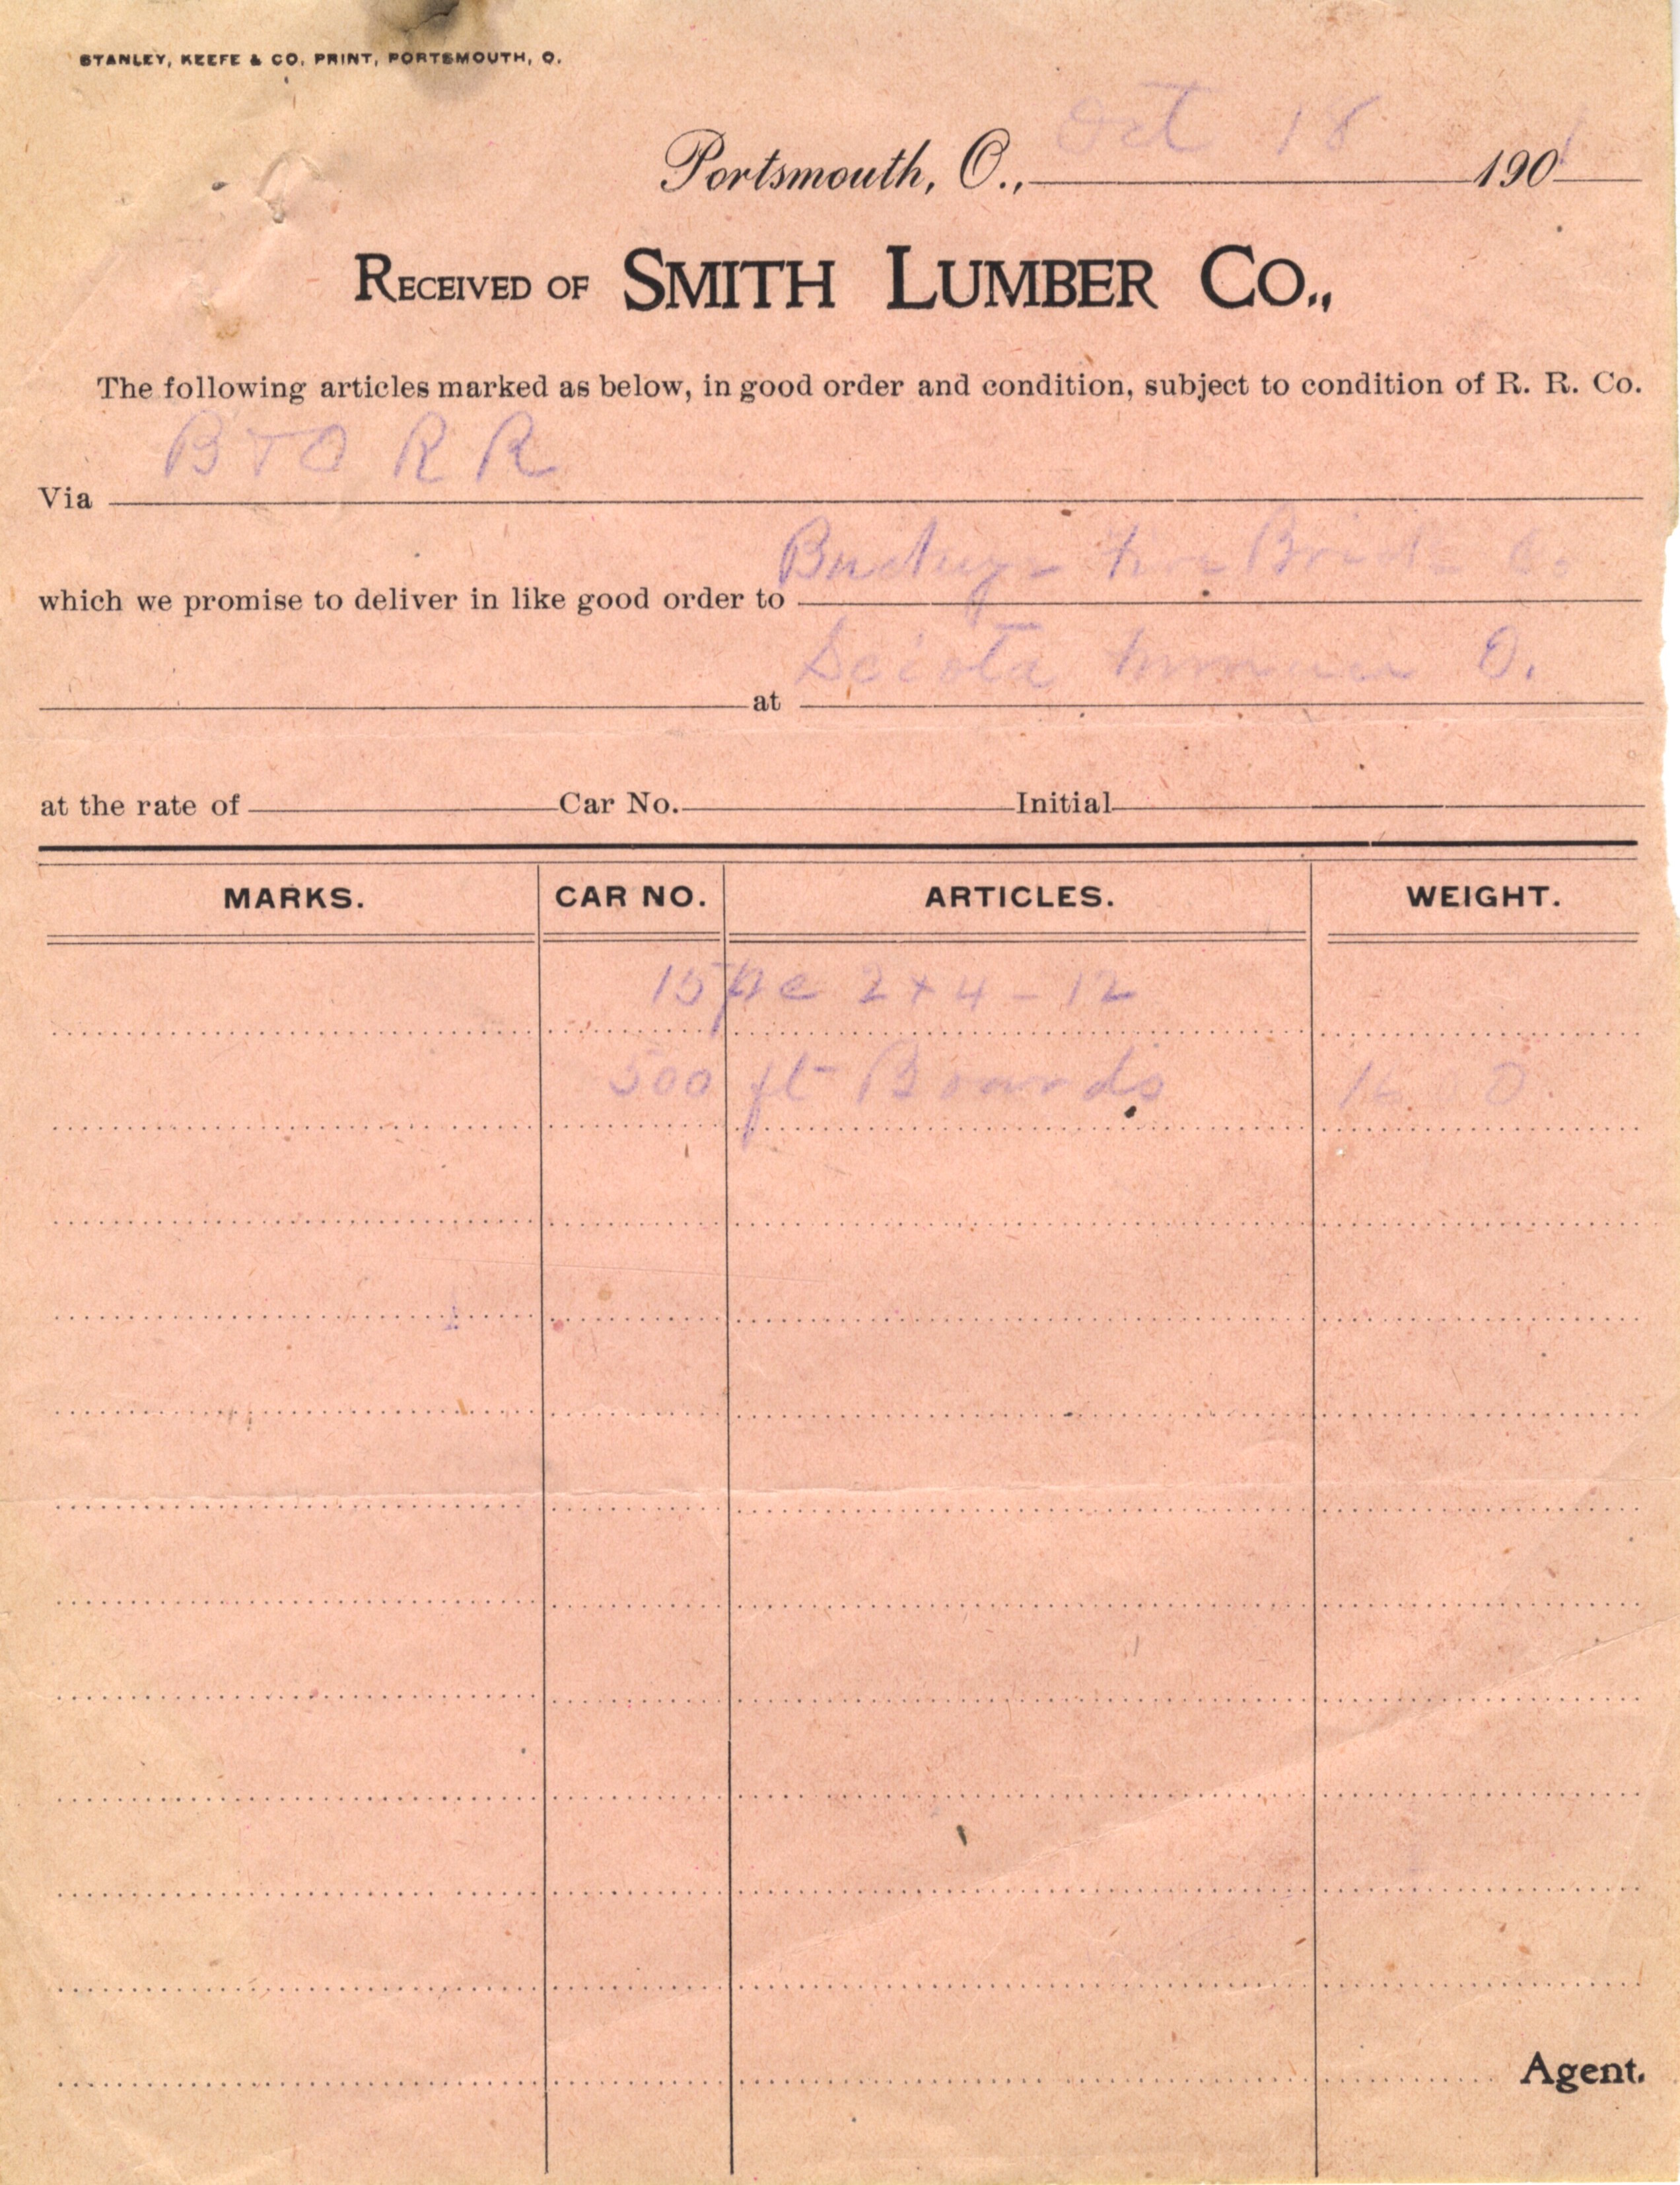 STANLEY, KEEFE & CO. PRINT, PORTSMOUTH, O.
Portsmouth, O., Oct 18 1901
RECEIVED OF SMITH LUMBER CO.,
The following articles marked as below, in good order and condition, subject to condition of R. R. Co.
Via B+O R R
which we promise to deliver in like good order to Buckeye Fire Brick Co
at Sciota Furnace O.
at the rate of Car No. Initial
MARKS. CAR NO. ARTICLES. WEIGHT.
15 pc 2 x 4 - 12
500 ft Boards
Agent.